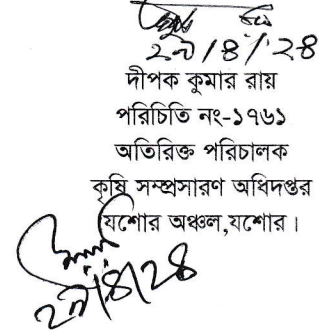 ২৯/৪/২৪
দীপক কুমার রায়
পরিচিতি নং-১৭৬১
অতিরিক্ত পরিচালক
কৃষি সম্প্রসারণ অধিদপ্তর
যশোর অঞ্চল,যশোর।
২৯/৪/২৪